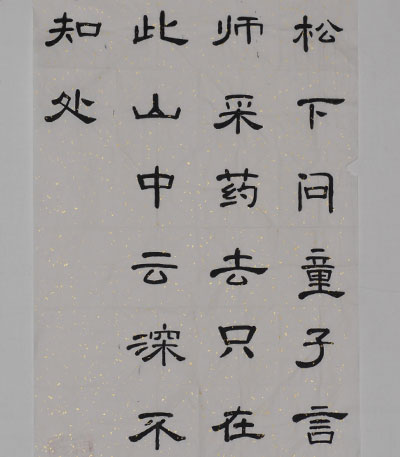 松下问童子言
师采药去只在
此山中云深不
知处